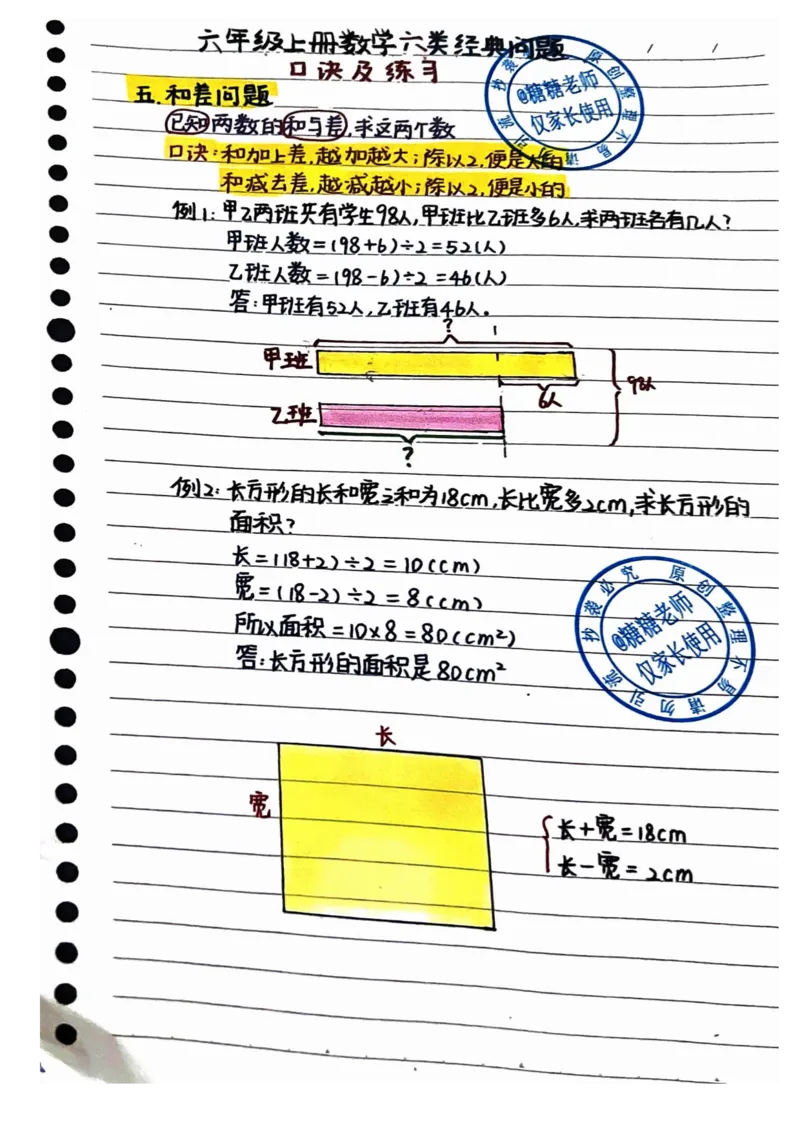 六年级上册数学六类经典问题
口诀及练习
五.和差问题
已知两数的和与差,求这两个数
口诀:和加上差,越加越大;除以2,便是大的
和减去差,越减越小;除以2,便是小的
例1:甲乙两班共有学生98人,甲班比乙班多6人,求两班各有几人?
甲班人数=(98+6)÷2=52(人)
乙班人数=(98-6)÷2=46(人)
答:甲班有52人,乙班有46人。
?
甲班
6人
98人
乙班
?
例2:长方形的长和宽之和为18cm,长比宽多2cm,求长方形的
面积?
长=(18+2)÷2=10(cm)
宽=(18-2)÷2=8(cm)
所以面积=10×8=80(cm²)
答:长方形的面积是80cm²
长
宽
长+宽=18cm
长-宽=2cm
原创整理不易请勿引流抄袭必究
@糖糖老师
仅家长使用
原创整理不易请勿引流抄袭必究
@糖糖老师
仅家长使用